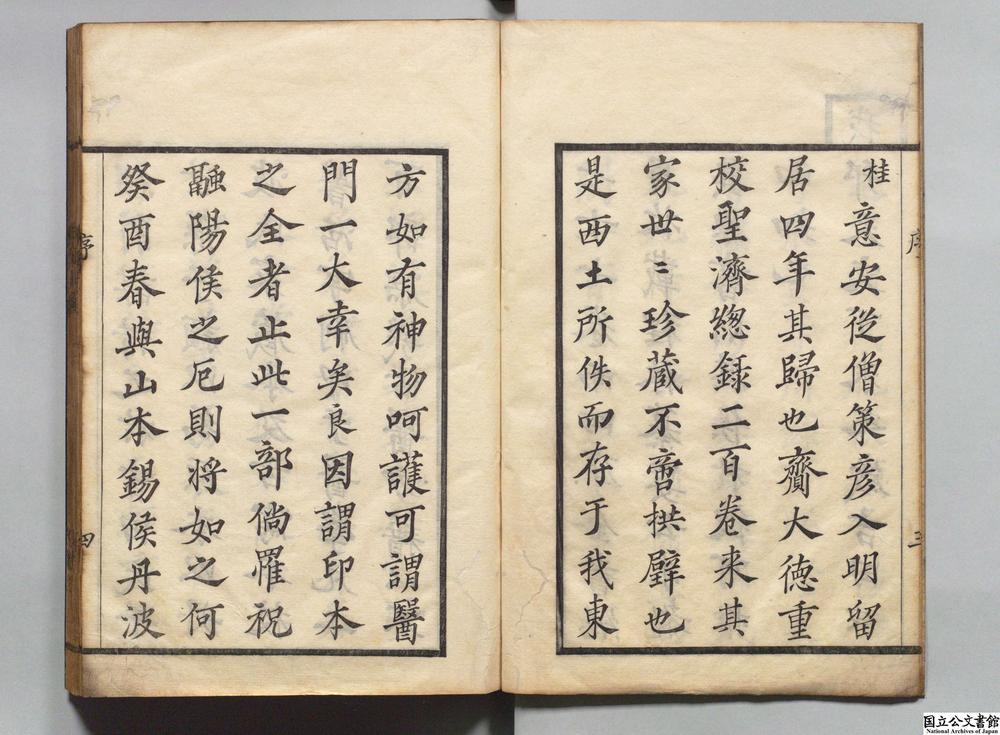 桂意安従僧策彦入明留
居四年其歸也齎大徳重
校聖濟總録二百卷来其
家世〻珍藏不啻拱璧也
是西土所佚而存于我東
序
三
方如有神物呵護可謂醫
門一大幸矣良因謂印本
之全者止此一部倘罹祝
融陽侯之厄則将如之何
癸酉春與山本錫侯丹波
序
四
国立公文書館
National Archives of Japan